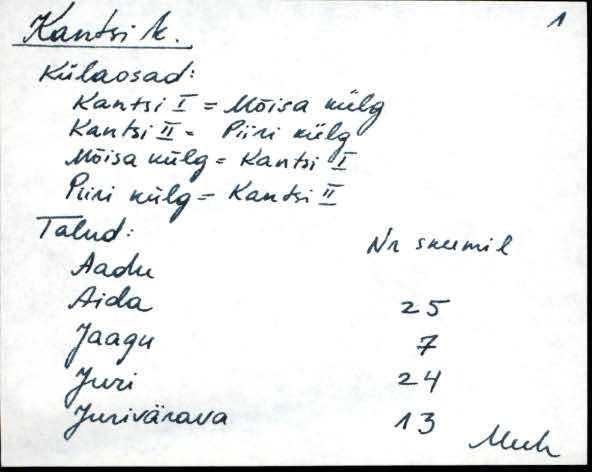 Kantsi k.
1
Külaosad:
Kantsi I = Mõisa külg
Kantsi II = Piiri külg
Mõisa külg = Kantsi I
Piiri külg = Kantsi II
Talud:
Nr skeemil
Aadu
Aida 25
Jaagu 7
Juri 24
Jurivärava 13
Muh